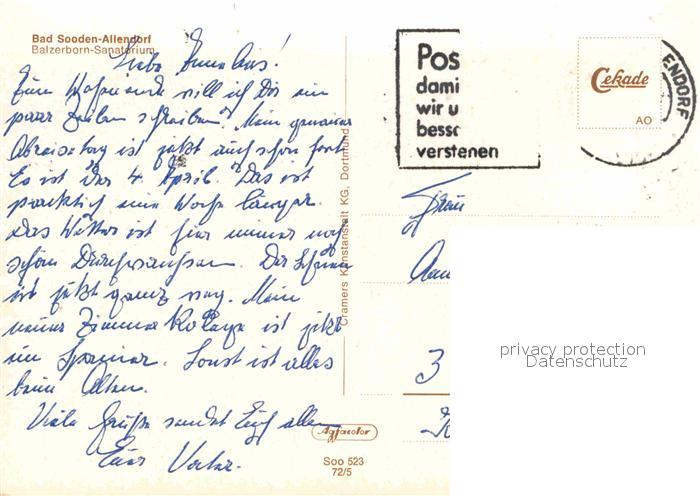 Bad Sooden-Allendorf
Balzerborn-Sanatorium
Liebe
Zum Wochenende will ich Dir ein
paar Zeilen schreiben. Mein genauer
Abreisetag ist jetzt auch schon fest
Es ist der 4. April. Das ist
praktisch eine Woche länger.
Das Wetter ist hier immer noch
schön
ist jetzt ganz weg. Mein
neuer Zimmerkollege ist jetzt
ein Spanier. Sonst ist alles
beim Alten.
Viele Grüße sendet Euch allen
Euer Vater.
Cramers Kunstanstalt KG. Dortmund
Agfacolor
Soo 523
72/5
Pos
dami
wir u
besse
verstehen
Cekade
AO
ENDORF
Frau
3
privacy protection
Datenschutz